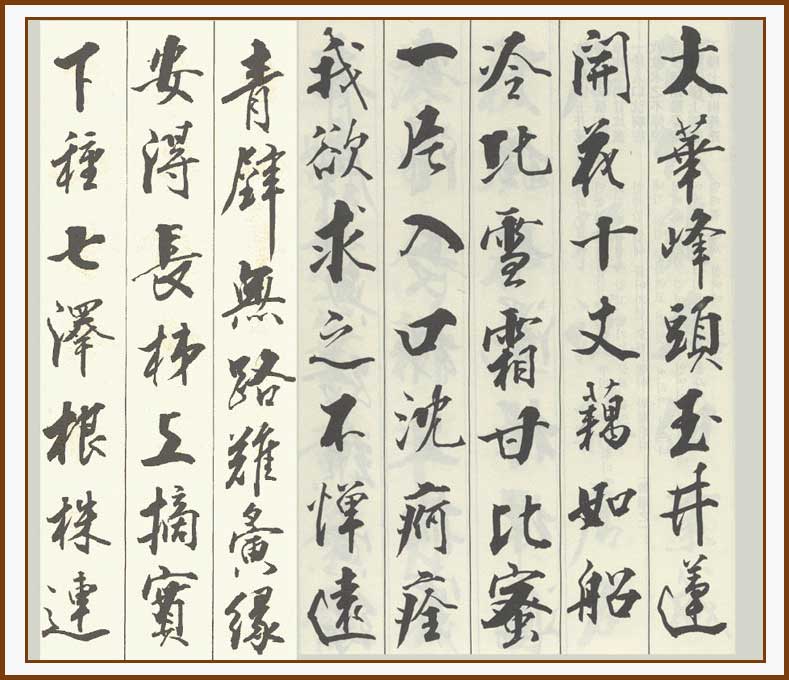 太華峰頭玉井蓮
開花十丈藕如船
冷比雪霜甘比蜜
一片入口沈痾痊
我欲求之不憚遠
青壁無路難夤緣
安得長梯上摘實
下種七澤根株連